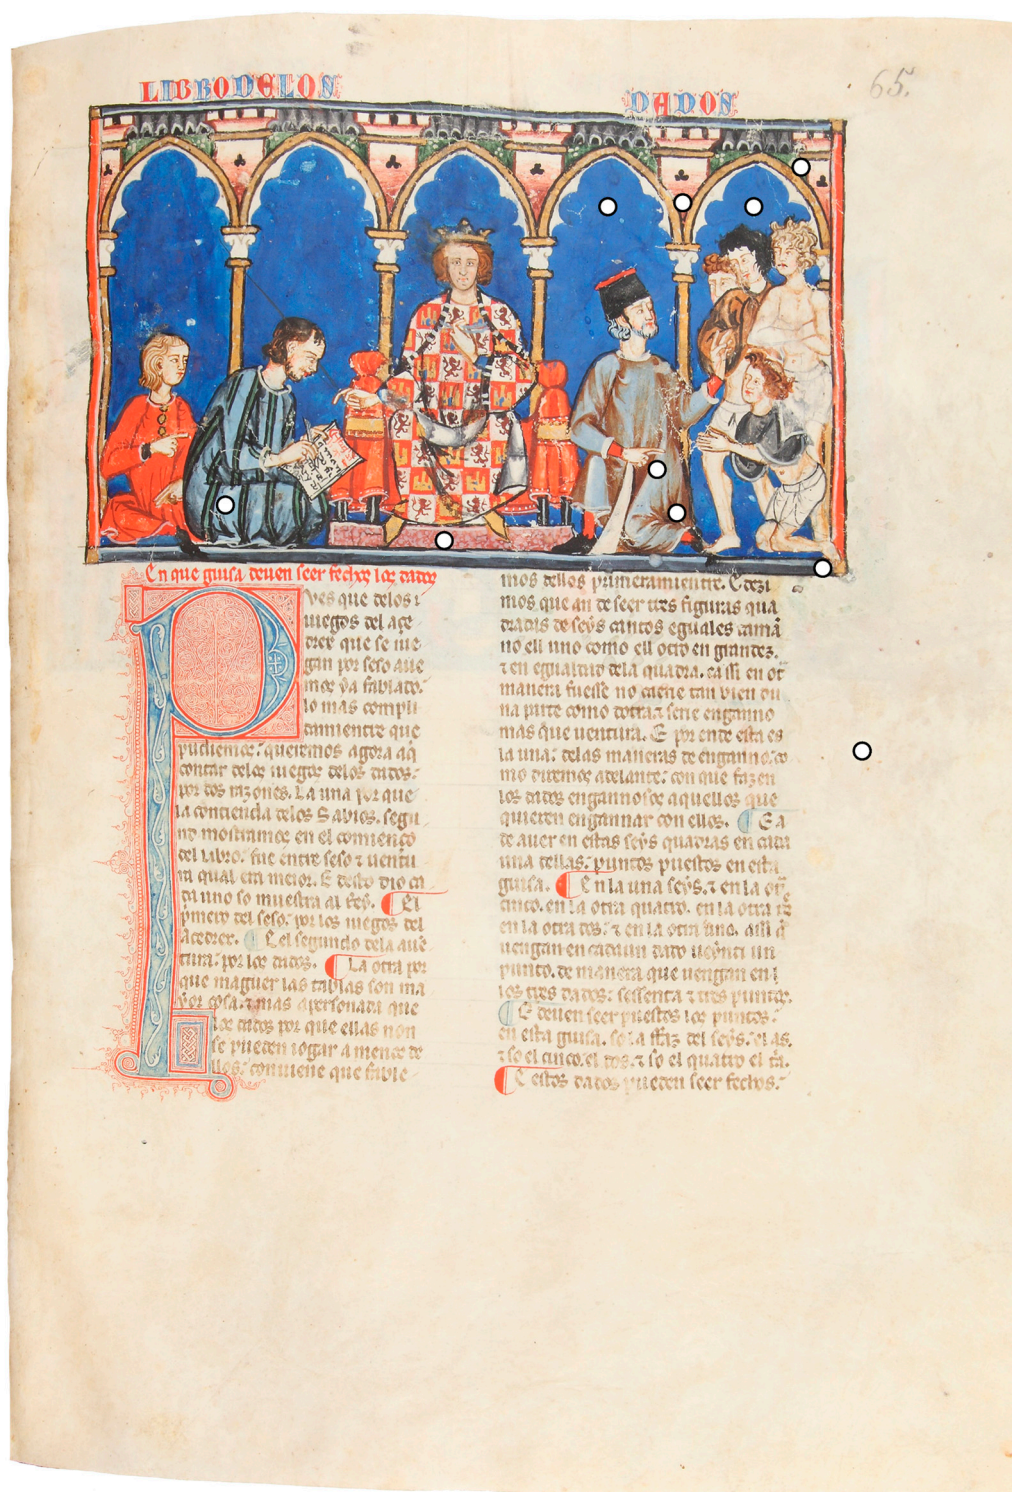 LIBRO DELOS DADOS
65.
En que guisa deuen seer fechos los dados
Pves que delos i
uuegos del açe
drex que se iue
gan por seso aue
mos ya fablado.
lo mas compli
damientre que
pudiemos: queremos agora aq̃
contar delos iuegos delos dados.
por dos razones. La una por que
la contienda delos Sabios. segũ
nd mostramos en el comienço
del Libro. fue entre seso & uentu
ra qual era meior. E desto dio ca
da uno so muestra al Rey. El
p̃mero del seso: por los iuegos del
Acedrex. E el segundo dela auẽ
tura: por los dados. La otra por
que maguer las tablas son ma
yor cosa. & mas apersonada que
los dados por que ellas non
se pueden iogar a menos de
llos: conuiene que fable
mos dellos primeramientre. E dezi
mos que an de seer tres figuras qua
dradas de seys cantos eguales tamã
no ell uno como ell otro en grandez.
& en egualdad dela quadra. ca si en ot̃
manera fuesse no caerie tan bien du
na parte como dotra & serie enganno
mas que uentura. E por ende esta es
la una: delas maneras de enganno. co
mo diremos adelante: con que fazen
los dados engannosos aquellos que
quieren engannar con ellos. E a
de auer en estas seys quadras en cada
una dellas. puntos puestos en esta
guisa. En la una seys. & en la ot̃
cinco. en la otra quatro. en la otra
en la otra dos. & en la otra uno. assi q̃
uengan en cadaun dado ueynti un
punto. de manera que uengan en l
los tres dados: sessenta & tres puntos.
E deuen seer puestos los puntos.
en esta guisa. so la ffaz del seys. el as.
& so el cinco. el dos. & so el quatro el
E estos dados pueden seer fechos.